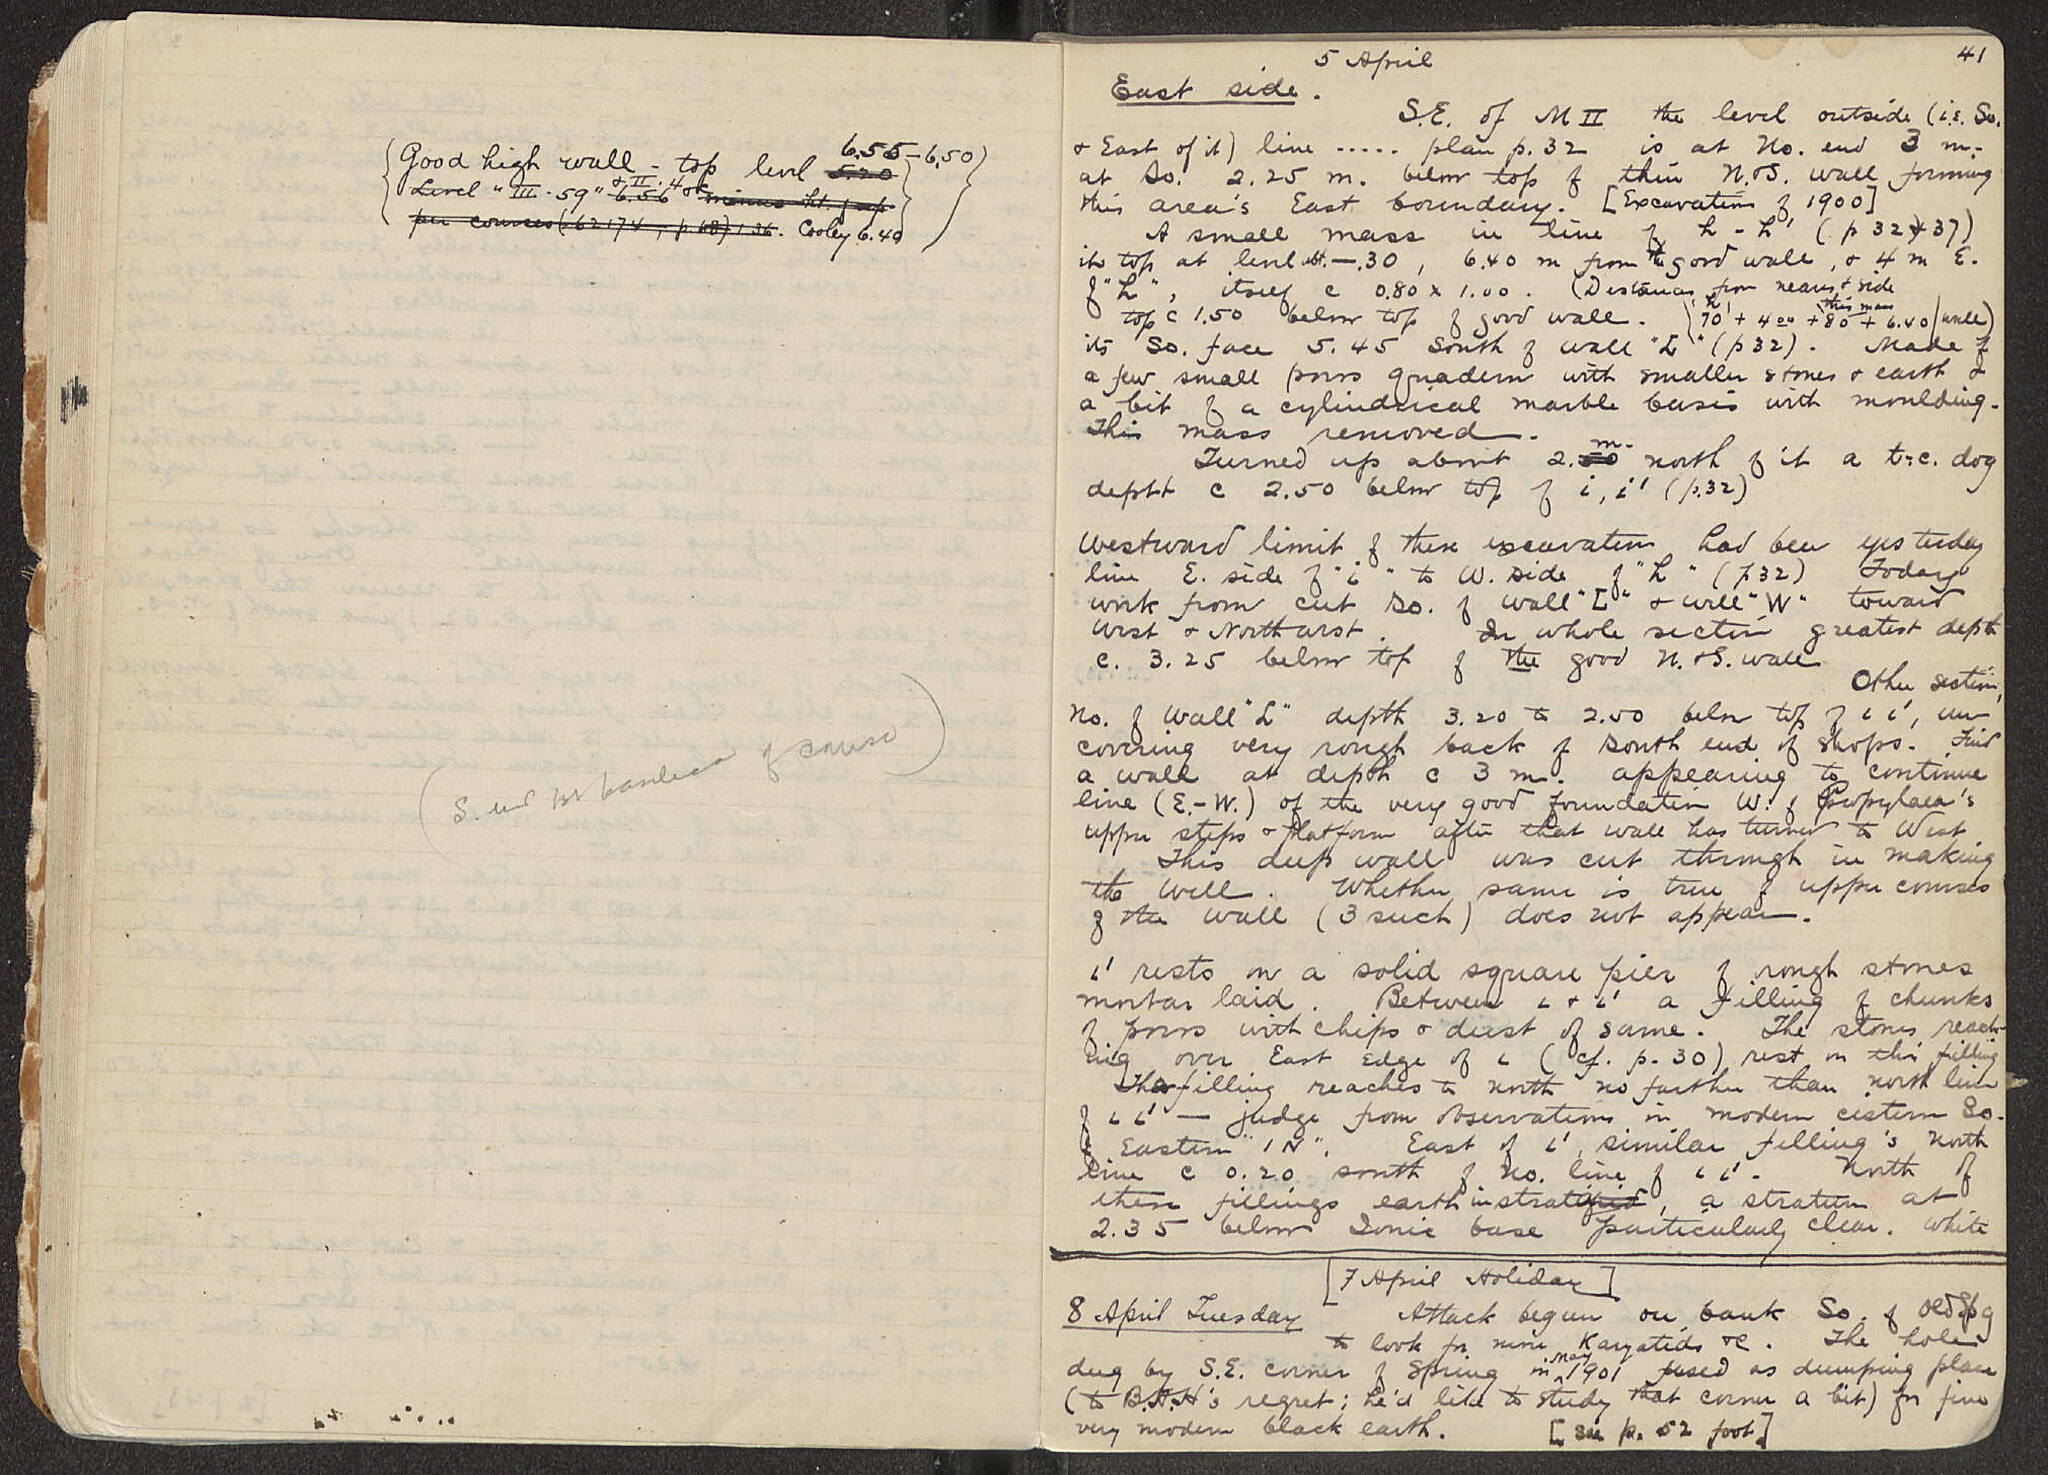 6.55 – 6.50)
{Good high wall – top level 5.20
& II. 4 or
Level "III. 59" 6.56
per courses (62174, p. 68) 1.36. Cooley 6.40
(S. end of course)
41
5 April
East side.
S.E. of M II the level outside (i.E. So.
& East of it) line ..... plan p. 32 is at No. end 3 m.
at So. 2.25 m. below top of thin N.&S. wall forming
this area's East boundary. [Excavation of 1900]
A small mass in line of h - h' (p 32 & 37)
its top at level abt. –.30, 6.40 m from the good wall, & 4 m E.
of "h", itself c 0.80 x 1.00. (Distances from nearest side
top c 1.50 below top of good wall. (h' 70 + 4.00 + this mass 80 + 6.40 / wall)
its So. face 5.45 South of wall "L" (p 32). Made of
a few small poros quadern with smaller stones & earth &
a bit of a cylindrical marble basis with moulding.
This mass removed.
Turned up about 2. m. north of it a t.c. dog
depth c 2.50 below top of i, i' (p.32)
Westward limit of these excavation had been yesterday
line E. side of "i" to W. side of "h" (p32) Today
work from cut So. of wall "L" & well "W" toward
West & Northwest. In whole section greatest depth
c. 3.25 below top of the good N.&S. wall
Other section,
No. of Wall "L" depth 3.20 to 2.50 below top of i i', un-
covering very rough back of South end of shops. Find
a wall at depth c 3 m. appearing to continue
line (E.-W.) of the very good foundation W. of Propylaea's
upper steps & platform after that wall has turned to West
This deep wall was cut through in making
the Well. Whether same is true of upper courses
of the wall (3 such) does not appear.
i' rests on a solid square pier of rough stones
mortar laid. Between i & i' a filling of chunks
of poros with chips & dust of same. The stones reach-
ing over East edge of i (cf. p. 30) rest on this filling
The filling reaches to north no farther than north line
of i i' — judge from observations in modern cistern So.
of Eastern "IN". East of i' similar filling's North
line c 0.20 south of No. line of i i'. North of
these fillings earth in strata, a stratum at
2.35 below Ionic base particularly clear. White
[7 April Holiday]
8 April Tuesday Attack begun on bank So. of Old Spg
to look for more Karyatids &c. The hole
dug by S.E. corner of Spring in May 1901 used as dumping place
(to B.H.H's regret; he'd like to study that corner a bit) for fine
very modern black earth. [see p. 52 foot]